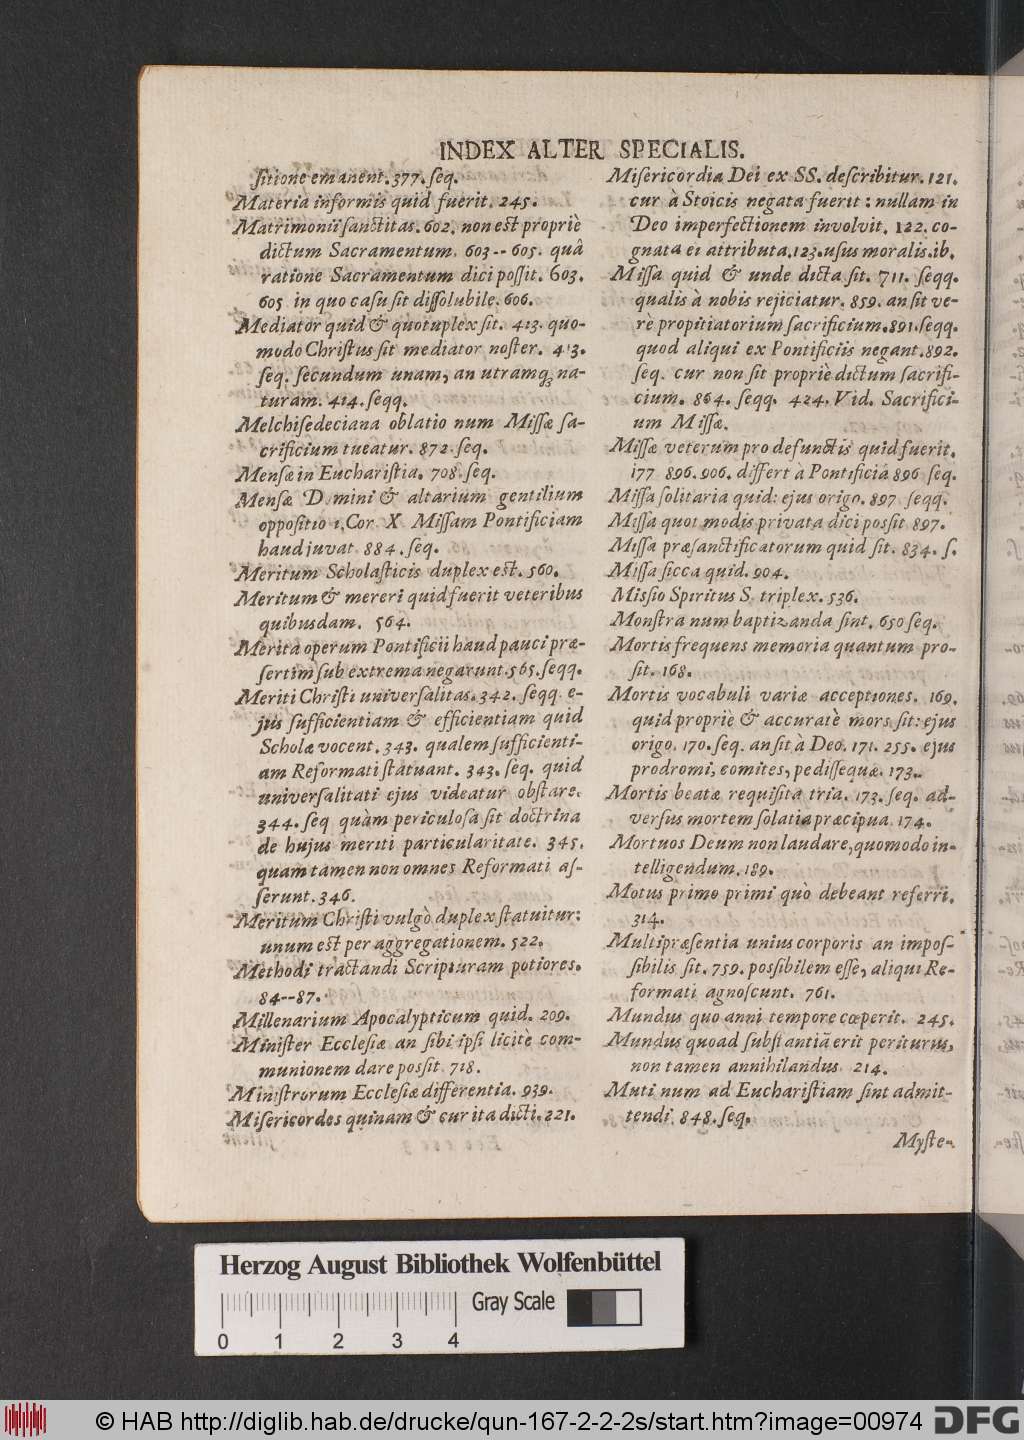 INDEX ALTER SPECIALIS.
ſitione emanent. 377. ſeq.
Materia informis quid fuerit. 245.
Matrimonii ſanctitas. 602. non eſt propriè
dictum Sacramentum. 603--605. quâ
ratione Sacramentum dici poſſit. 603.
605 in quo caſu ſit diſſolubile. 606.
Mediator quid & quotuplex ſit. 413. quo-
modo Chriſtus ſit mediator noſter. 413.
ſeq. ſecundum unam, an utramq; na-
turam. 414. ſeqq.
Melchiſedeciana oblatio num Miſſæ ſa-
crificium tueatur. 872. ſeq.
Menſæ in Euchariſtia. 708. ſeq.
Menſæ D mini & altarium gentilium
oppoſitio 1. Cor. X Miſſam Pontificiam
haud juvat 884. ſeq.
Meritum Scholaſticis duplex eſt. 560.
Meritum & mereri quid fuerit veteribus
quibusdam. 564.
Merita operum Pontificii haud pauci præ-
ſertim ſub extrema negarunt. 565. ſeqq.
Meriti Chriſti univerſalitas. 342. ſeqq e-
jus ſufficientiam & efficientiam quid
Scholæ vocent. 343. qualem ſufficienti-
am Reformati ſtatuant. 343. ſeq. quid
univerſalitati ejus videatur obſtare.
344. ſeq quàm periculoſa ſit doctrina
de hujus meriti particularitate. 345.
quam tamen non omnes Reformati aſ-
ſerunt. 346.
Meritum Chriſti vulgò duplex ſtatuitur:
unum eſt per aggregationem. 522.
Methodi tractandi Scripturam potiores.
84--87.
Millenarium Apocalypticum quid. 209.
Miniſter Eccleſiæ an ſibi ipſi licitè com-
munionem dare poſſit 718.
Miniſtrorum Eccleſiæ differentia. 939.
Miſericordes quinam & cur ita dicti. 221.
Miſericordia Dei ex SS. deſcribitur. 121.
cur à Stoicis negata fuerit: nullam in
Deo imperfectionem involvit. 122. co-
gnata ei attributa. 123. uſus moralis. ib.
Miſſa quid & unde dicta ſit. 711. ſeqq.
qualis à nobis rejiciatur. 859. an ſit ve-
rè propitiatorium ſacrificium. 891. ſeqq.
quod aliqui ex Pontificiis negant. 892.
ſeq. cur non ſit propriè dictum ſacrifi-
cium. 864. ſeqq. 424. Vid. Sacrifici-
um Miſſæ.
Miſſæ veterum pro defunctis quid fuerit.
177 896. 906. differt à Pontificiâ 896 ſeq.
Miſſa ſolitaria quid: ejus origo. 897 ſeqq.
Miſſa quot modis privata dici poſſit 897.
Miſſa præſanctificatorum quid ſit. 834. ſ.
Miſſa ſicca quid. 904.
Miſſio Spiritus S. triplex. 536.
Monſtra num baptizanda ſint. 650 ſeq.
Mortis frequens memoria quantum pro-
ſit. 168.
Mortis vocabuli variæ acceptiones. 169.
quid propriè & accuratè mors ſit: ejus
origo. 170. ſeq. an ſit à Deo. 171. 255. ejus
prodromi, comites, pediſſequæ. 173.
Mortis beatæ requiſita tria. 173. ſeq. ad-
verſus mortem ſolatia præcipua. 174.
Mortuos Deum non laudare, quomodo in-
telligendum. 189.
Motus primo primi quò debeant referri.
314.
Multipræſentia unius corporis an impoſ-
ſibilis ſit. 759. poſſibilem eſſe, aliqui Re-
formati agnoſcunt. 761.
Mundus quo anni tempore cœperit. 245.
Mundus quoad ſubſtantiā erit periturus,
non tamen annihilandus 214.
Muti num ad Euchariſtiam ſint admit-
tendi. 848. ſeq.
Myſte-
Herzog August Bibliothek Wolfenbüttel
Gray Scale
0 1 2 3 4
© HAB http://diglib.hab.de/drucke/qun-167-2-2-2s/start.htm?image=00974
DFG